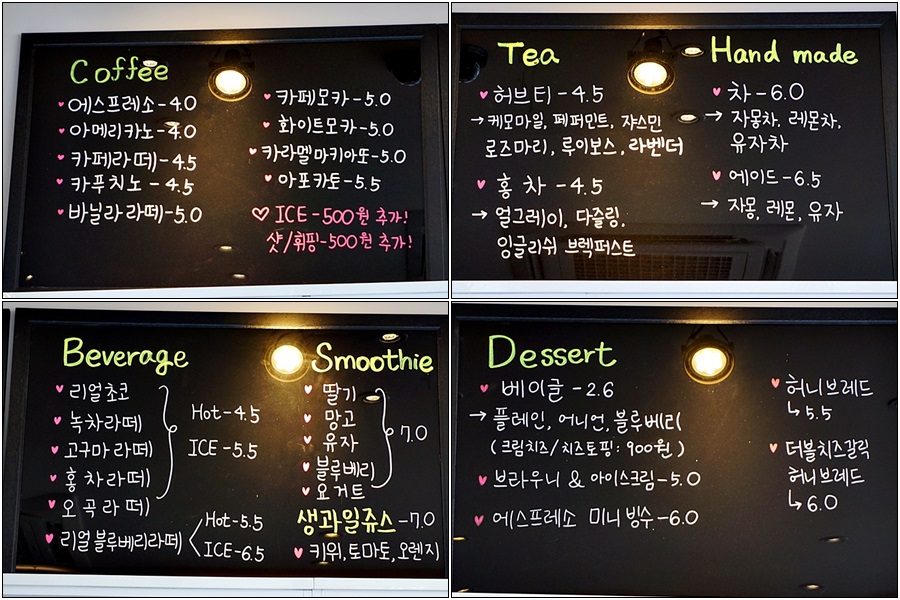 Coffee
에스프레소-4.0
아메리카노-4.0
카페라떼)-4.5
카푸치노-4.5
바닐라라떼-5.0
카페모카-5.0
화이트모카-5.0
카라멜마키아또-5.0
아포카토-5.5
ICE-500원 추가!
샷/휘핑-500원 추가!
Tea
허브티-4.5
→케모마일, 페퍼민트, 쟈스민
로즈마리, 루이보스, 라벤더
홍차-4.5
→얼그레이, 다즐링,
잉글리쉬 브렉퍼스트
Hand made
차-6.0
→자몽차, 레몬차,
유자차
에이드-6.5
→자몽, 레몬, 유자
Beverage
리얼초코
녹차라떼)
고구마라떼)
홍차라떼)
오곡라떼)
Hot-4.5
ICE-5.5
리얼블루베리라떼)
Hot-5.5
ICE-6.5
Smoothie
딸기
망고
유자
블루베리
요거트
7.0
생과일쥬스-7.0
키위,토마토,오렌지
Dessert
베이글-2.6
→플레인, 어니언, 블루베리
(크림치즈/치즈토핑: 900원)
브라우니 & 아이스크림-5.0
에스프레소 미니빙수-6.0
허니브레드
↳5.5
더블치즈갈릭
허니브레드
↳6.0